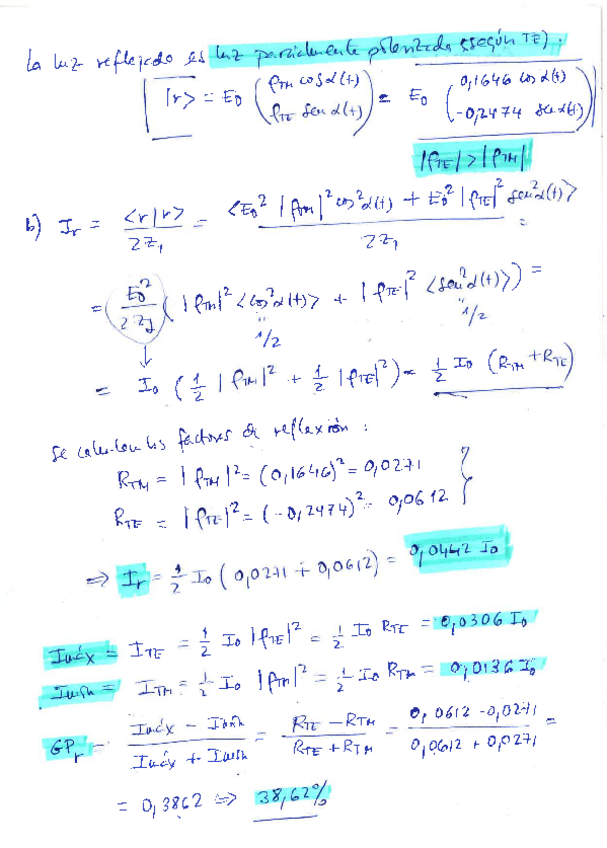 La luz reflejada es luz parcialmente polarizada (según TE):
|r> = E₀ (ρTM cos α(t) / ρTE sen α(t)) = E₀ (0,1646 cos α(t) / -0,2474 sen α(t))
|ρTE| > |ρTM|
b) Ir = <r|r> / 2Z₁ = <E₀² |ρTM|² cos² α(t) + E₀² |ρTE|² sen² α(t)> / 2Z₁ =
= E₀² / 2Z₁ ( |ρTM|² <cos² α(t)> + |ρTE|² <sen² α(t)> ) =
" 1/2 " 1/2
= I₀ ( 1/2 |ρTM|² + 1/2 |ρTE|² ) = 1/2 I₀ (RTM + RTE)
Se calculan los factores de reflexión:
RTM = |ρTM|² = (0,1646)² = 0,0271
RTE = |ρTE|² = (-0,2474)² = 0,0612 }
⇒ Ir = 1/2 I₀ (0,0271 + 0,0612) = 0,0442 I₀
Imáx = ITE = 1/2 I₀ |ρTE|² = 1/2 I₀ RTE = 0,0306 I₀
Imín = ITM = 1/2 I₀ |ρTM|² = 1/2 I₀ RTM = 0,0136 I₀
GPr = (Imáx - Imín) / (Imáx + Imín) = (RTE - RTM) / (RTE + RTM) = (0,0612 - 0,0271) / (0,0612 + 0,0271) =
= 0,3862 ⇒ 38,62%